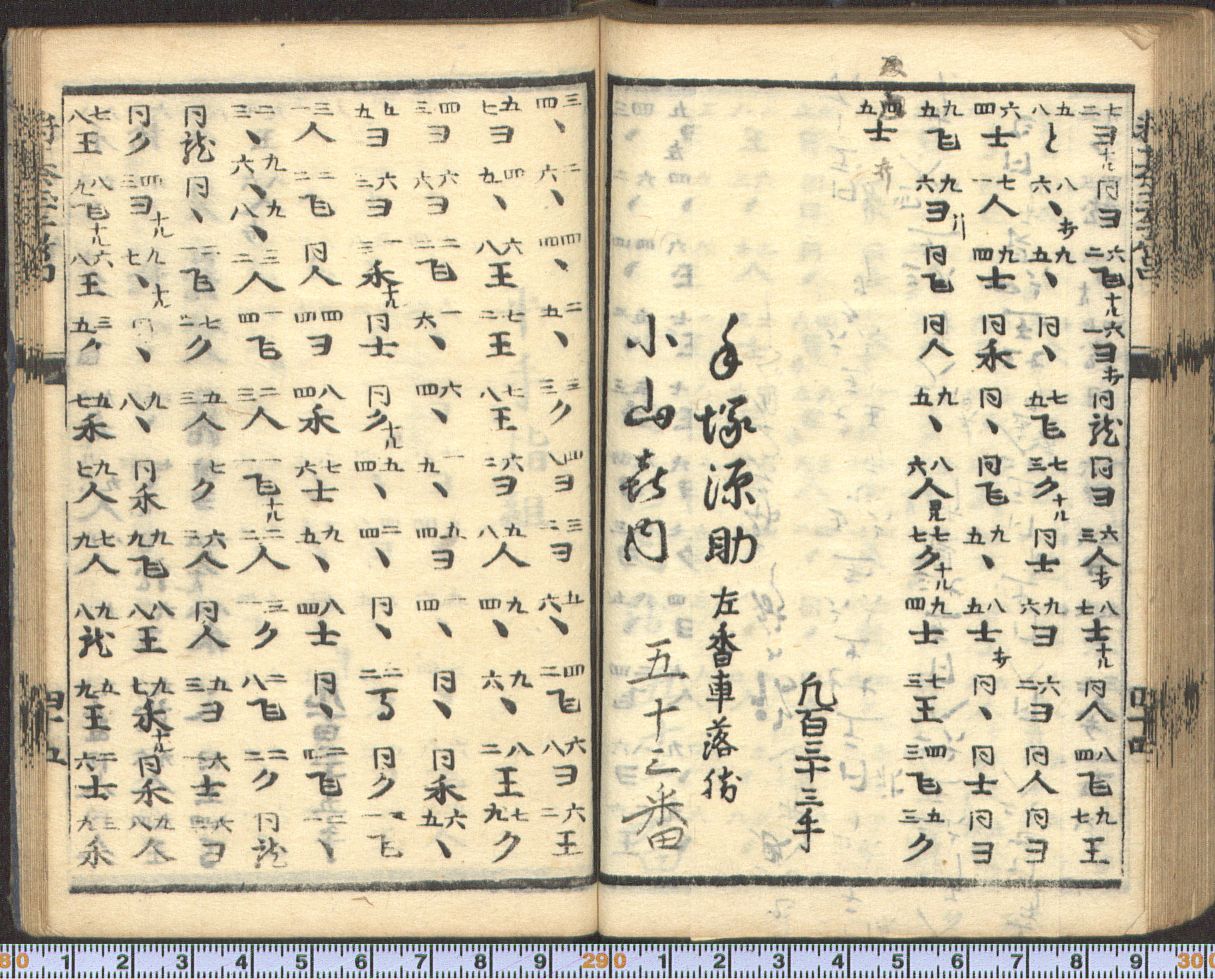 七二ヨナル 同ヨ 六二飞ナル 六一ヨ打 同龍 同ヨ 六三人打 八七士ナル 同人 八四飞 九七王
五八と 八六、打 九五、 同、 七五飞 七三クナル 同士 九六ヨ 六二ヨ 同人 同ヨ
六四士 七一人 九四士 同永 同、 同飞 九五、 八五士打 同、 同士 同ヨ
九五飞 九六ヨ引 同飞 同人 九五、 八六人 七七クナル 九四士 七三王 四三飞 五三ク
四五士 凢百三十三手
手塚源助 左香車落勝
小山㐂内 五十三番
四十四
三四、 二六、 四四、 二五、 三三ク 四八ヨ 三二ヨ 五六、 四二飞 六八ヨ 六二王
五七ヨ 四九、 六八王 七二王 七八王 六二ヨ 五八人 九四、 九六、 八二王 七九ク
四三ヨ 六六ヨ 二二飞 一六、 六四、 一九、 五四ヨ 一四、 同、 同永 六五、
五九ヨ 六二ヨ 一三永ナル 同士 同クナル 五四、 二四、 同、 二二ろ 同ク 一一飞
三一人 二二飞 同人 四四ヨ 八四永 七六士 九五、 八四士 同、 二四飞 二三、
二三、 九六、 九八、 三二人 一四飞 二三人 一一飞ナル 二二人 三一ク 二八飞 二二ク 同龍
同龍 同、 二一飞 七二ク 五三人 七一ク 六二人 同人 九三ヨ 六一士 六四ヨ
同ク 四三ヨナル 九七、ナル 同、 九八、 同永 九九飞 八八王 九七永ナル 同永 九八人
七八王 八九飞ナル 六八王 三五ク 五七永 九七人 七九人 九八龍 五九王 二六士 三九永
四十五